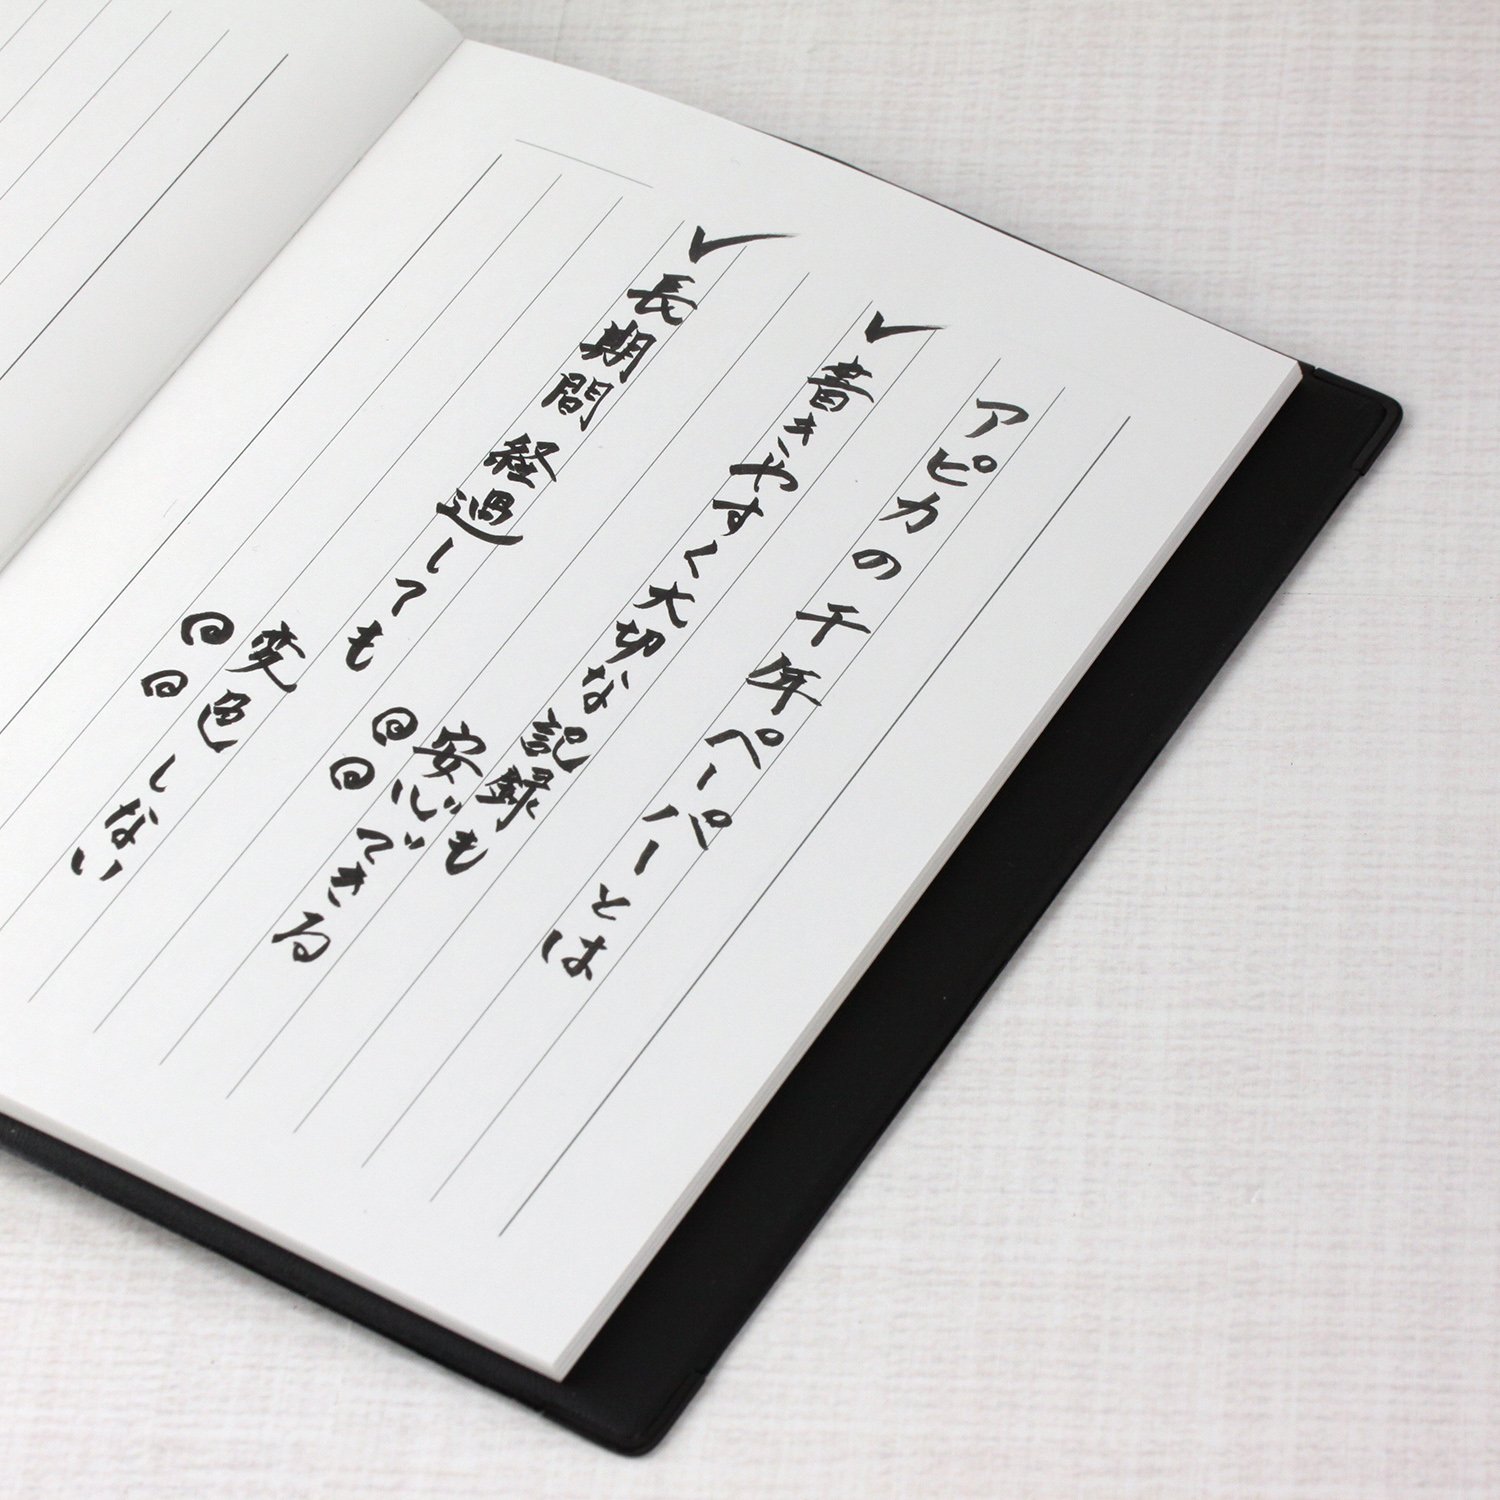 アピカの千年ペーパーとは
✓書きやすく大切な記録も
安心できる◎◎
✓長期間経過しても
変色しない◎◎